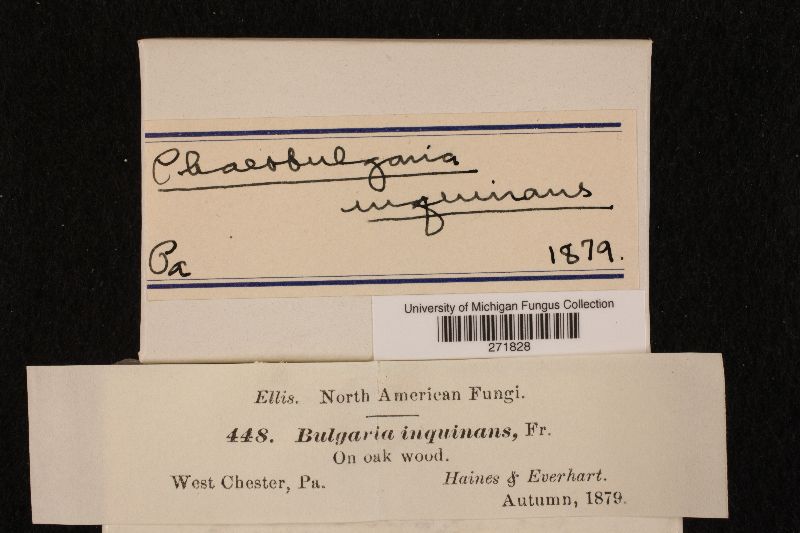 Phaeobulgaria
inquinans
Pa 1879.
University of Michigan Fungus Collection
271828
Ellis. North American Fungi.
448. Bulgaria inquinans, Fr.
On oak wood.
West Chester, Pa. Haines & Everhart.
Autumn, 1879.